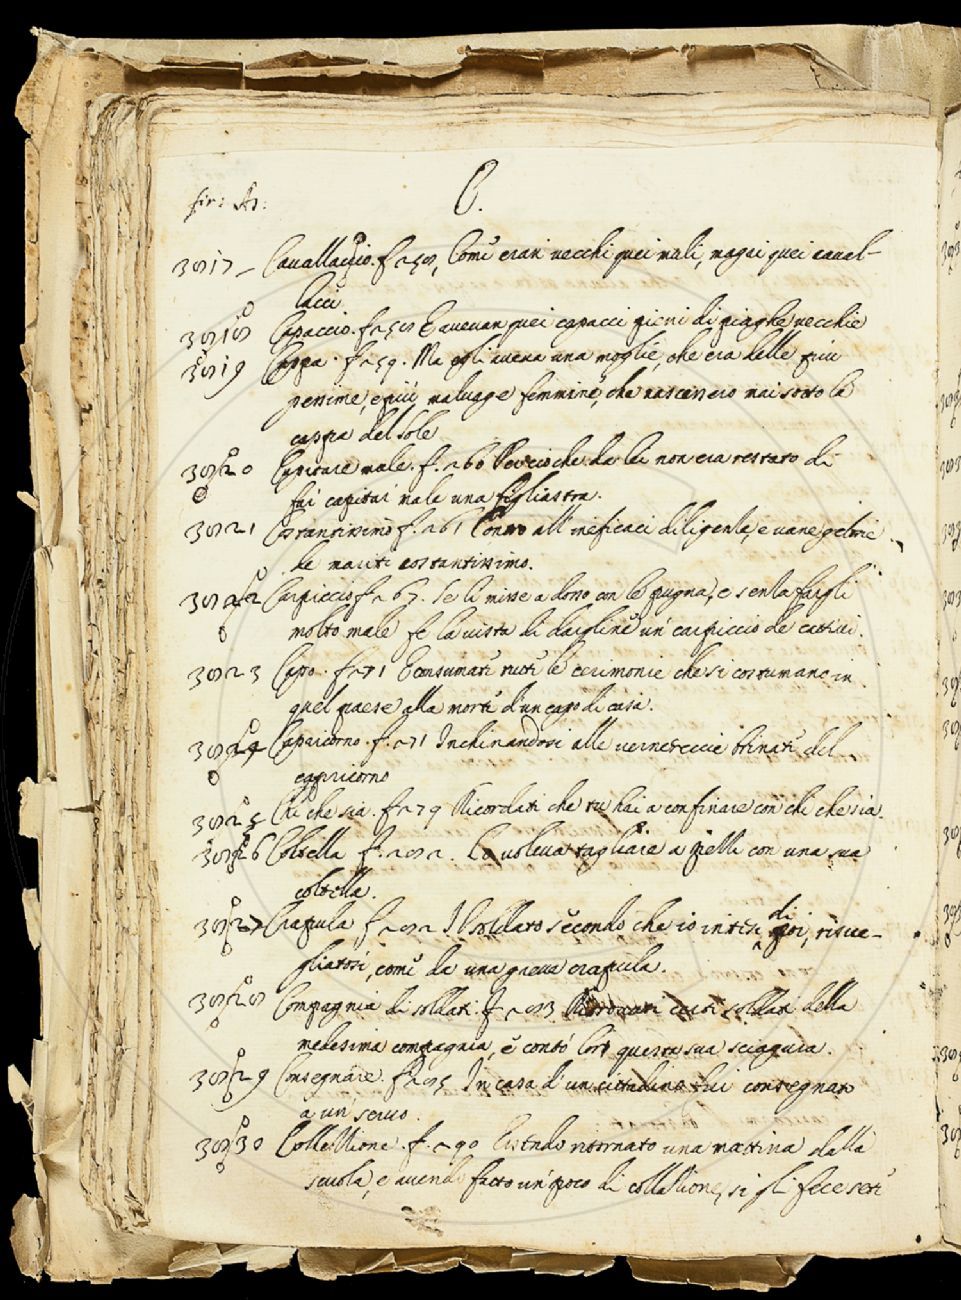 C.
fir: As:
3817 - Cavallaccio. f 258, Come eran vecchi quei muli, magri quei caval-
lacci
3818 Capaccio. f 258 E avevan quei capacci pieni di piaghe vecchie
3819 Cappa. f 259. Ma egli aveva una moglie, che era delle piu
pessime, e piú malvage femmine, che nascessero mai sotto la
cappa del sole
3820 Capitare male. f. 260 Perciò che da lei non era restato di
far capitar male una figliastra.
3821 Costantissimo f. 261 Contro all' inefficaci diligenze, e vane
de mariti costantissimo.
3822 Carpiccio f 267. Se li misse a dosso con le pugna, e senza fargli
molto male fe la vista di dargline un' carpiccio de cattivi.
3823 Capo. f 271 E consumate tutte le cerimonie che si costumano in
quel paese alla morte d'un capo di casa.
3824 Capricorno. f. 271 Inchinandosi alle vernerecce brinate del
capricorno
3825 Chi che sia. f 279 Ricordati che tu hai a confinare con chi che sia.
3826 Coltella f. 282. La voleva tagliare a pezzi con una sua
coltella.
3827 Crapula f 282 Il soldato secondo che io intesi di poi, risve-
gliatosi, come da una grave crapula.
3828 Compagnia di soldati. f 283 Ritrovati certi soldati della
medesima compagnia, e contò loro questa sua sciagura.
3829 Consegnare. f 285 In casa d'un cittadino fui consegnato
a un servo.
3830 Collezione. f. 290 Essendo ritornato una mattina dalla
scuola, e avendo fatto un' poco di collezione, si gli fece sete